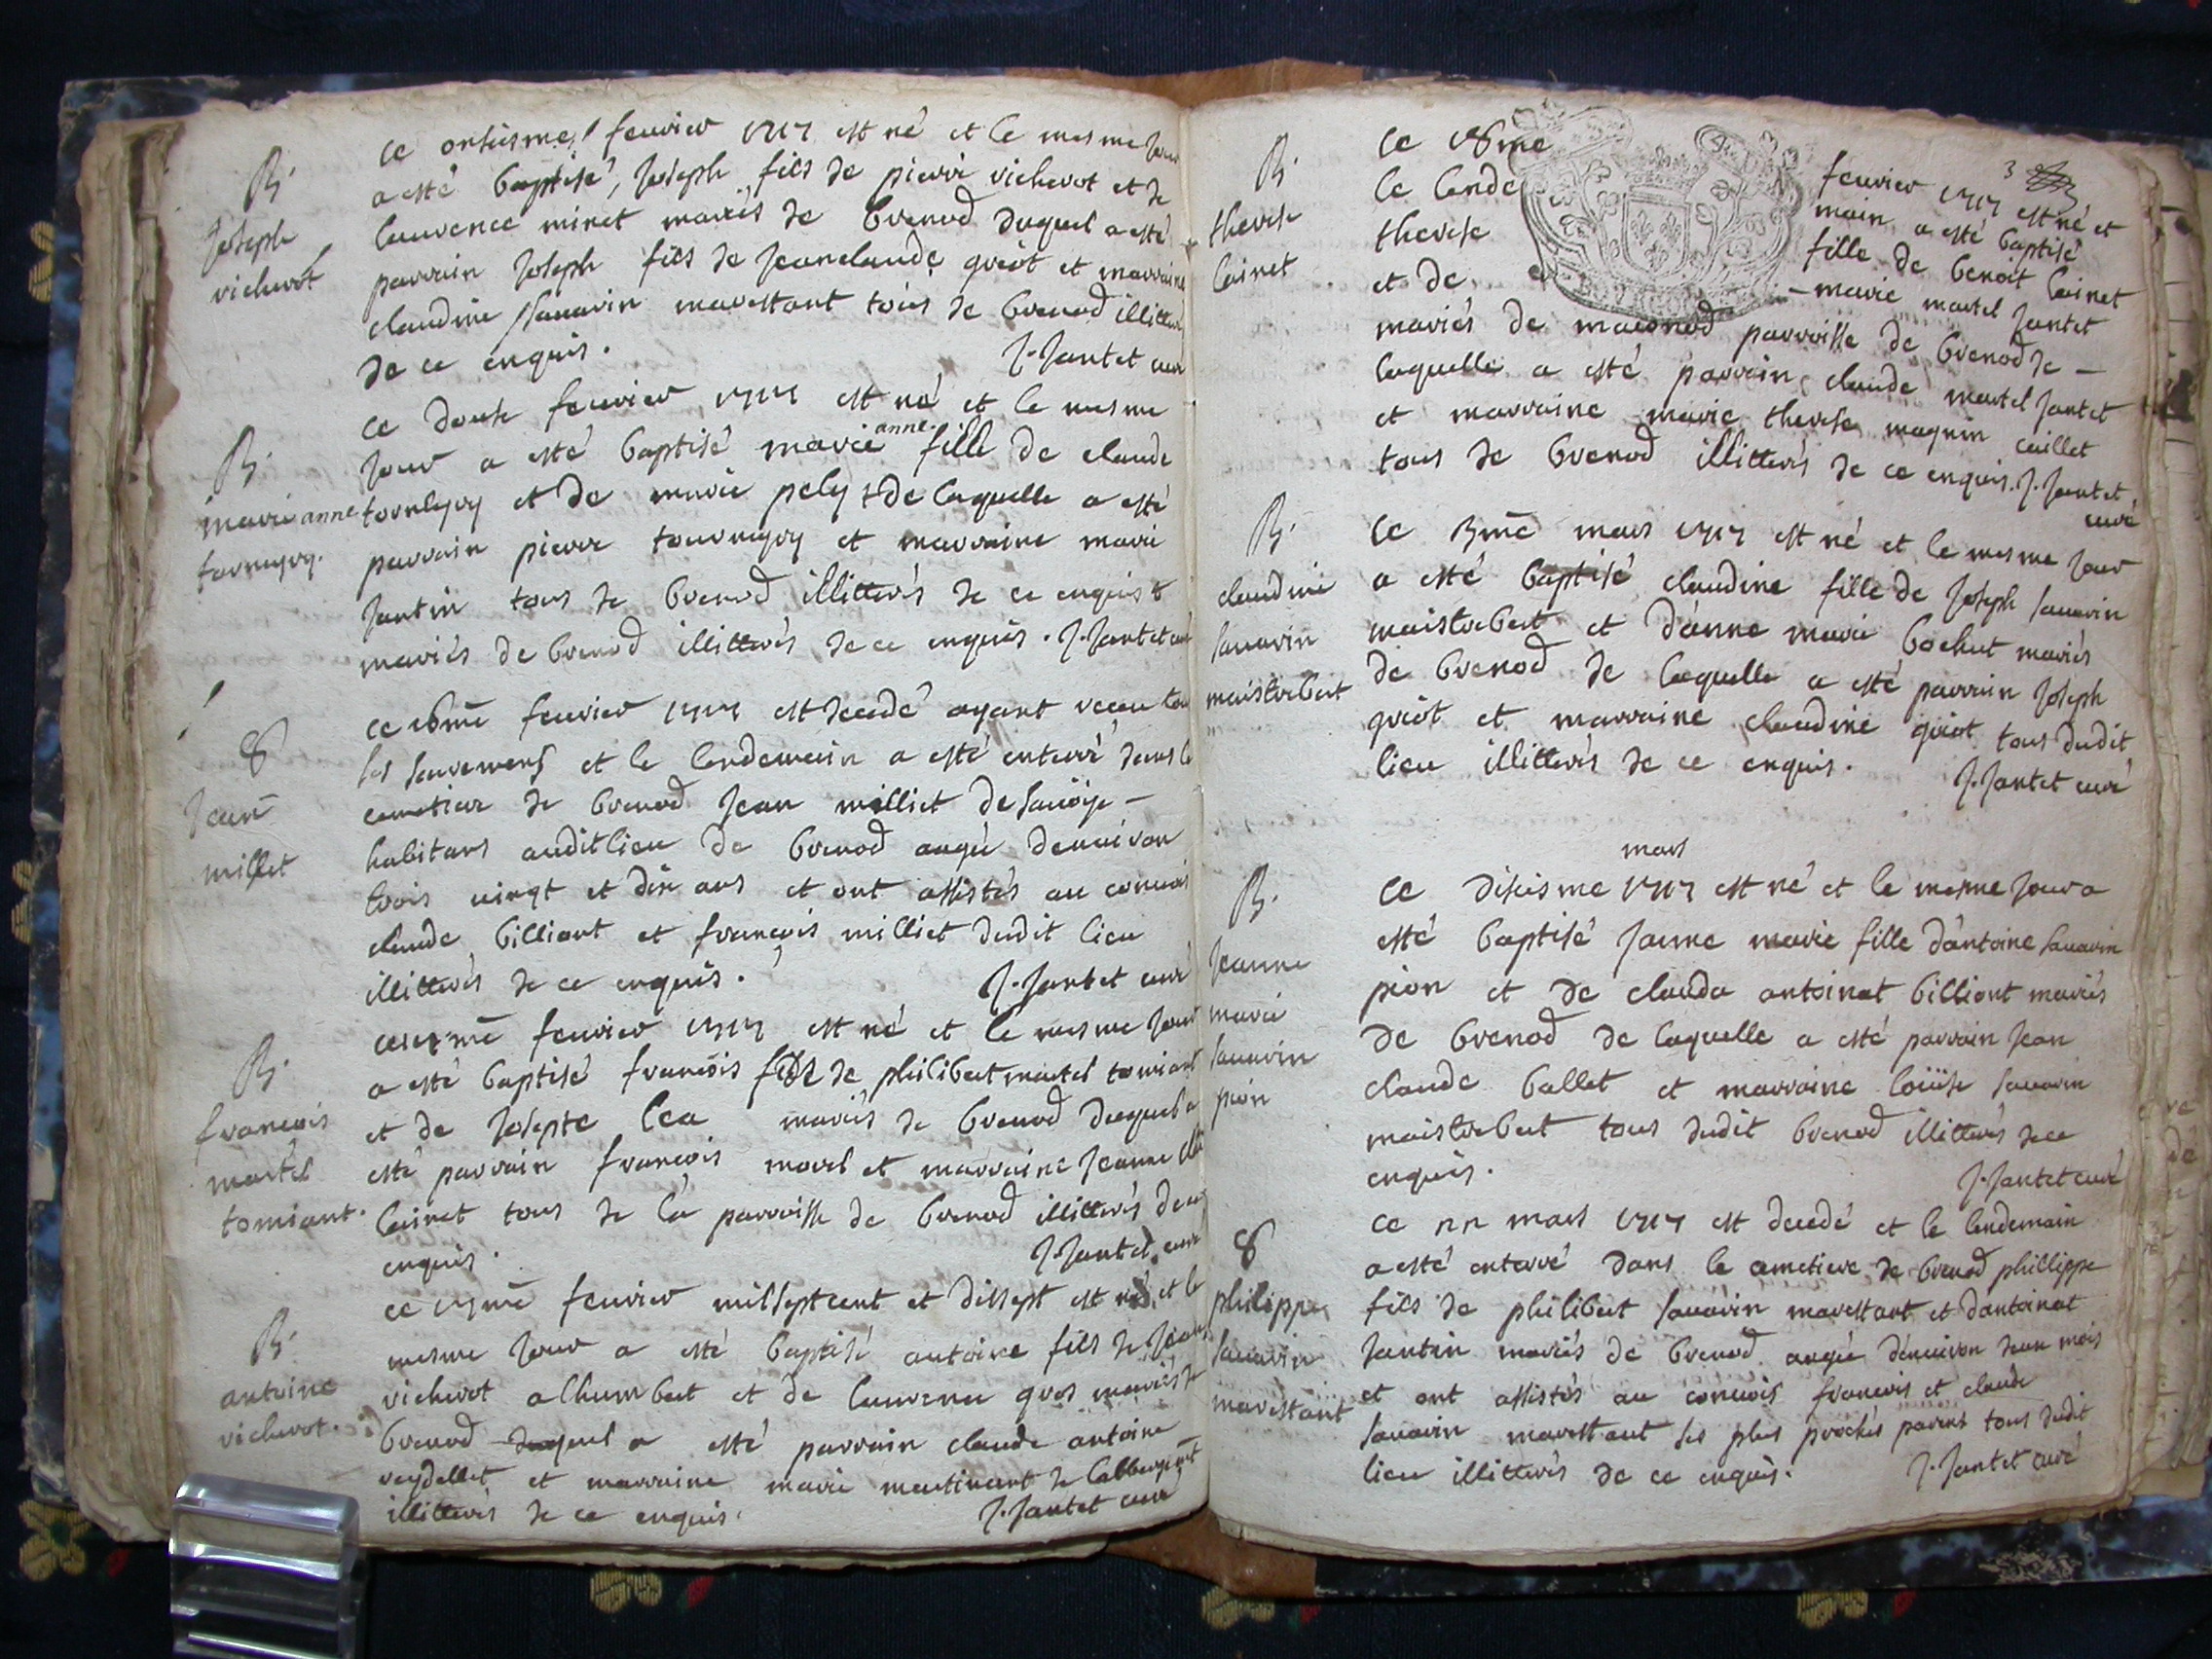 B.
Joseph
vicherot
ce onsiesme feuvier 1717 est né et le mesme jour
a esté baptisé, Joseph fils de pierre vicherot et de
laurence minet mariés de brenod duquel a esté
parrain Joseph fils de Jeanclaude griot et marraine
claudine sauarin marestant tous de brenod illitterés
de ce enquis. J. Jantet curé
B.
marie anne
tornegry.
ce douse feuvier 1717 est né et le mesme
jour a esté baptisé marie anne fille de claude
et de marie pely de laquelle a esté
parrain pierre et marraine marie
Jantin tous de brenod illitterés de ce enquis et
mariés de brenod illitterés de ce enquis. J. Jantet curé
8
Jean
millet
ce 16me feuvier 1717 est decedé ayant receu tous
les sacremens et le lendemain a esté enterré dans le
cemetiere de brenod Jean milliet de sauoye
habitans audit lieu de brenod aagé denuiron
trois vingt et dix ans et ont assistés au conuois
claude billiont et francois milliet dudit lieu
illitterés de ce enquis. J. Jantet curé
B.
francois
martel
tomiant.
ce 17me feuvier 1717 est né et le mesme jour
a esté baptisé francois fils de philibert martel tomiant
et de Josepte lea mariés de brenod duquel a
esté parrain francois morel et marraine Jeanne
lainet tous de la parroisse de brenod illitterés de ce
enquis. J. Jantet curé
B.
antoine
vicherot.
ce 17me feuvier mil sept cent et dissept est né et le
mesme jour a esté baptisé antoine fils de Jean
vicherot alhumbert et de laurence gros mariés de
brenod duquel a esté parrain claude antoine
veydellet et marraine marie martinant de labbergement
illitterés de ce enquis. J. Jantet curé
3
B.
therese
lainet
ce 18me feuvier 1717 est né et
le lendemain a esté baptisé
therese fille de benoit lainet
et de marie martel Jantet
mariés de maconod parroisse de brenod de
laquelle a esté parrain claude martel Jantet
et marraine marie therese maguin caillet
tous de brenod illitterés de ce enquis. J. Jantet
curé
B.
claudine
sauarin
maistrebert
ce 3me mars 1717 est né et le mesme jour
a esté baptisé claudine fille de Joseph sauarin
maistrebert et d'anne marie bochut mariés
de brenod de laquelle a esté parrain Joseph
griot et marraine claudine griot tous dudit
lieu illitterés de ce enquis. J. Jantet curé
B.
Jeanne
marie
sauarin
pion
ce disiesme mars 1717 est né et le mesme jour a
esté baptisé Janne marie fille d'antoine sauarin
pion et de clauda antoinat billiont mariés
de brenod de laquelle a esté parrain Jean
claude ballet et marraine loüise sauarin
maistrebert tous dudit brenod illitterés de ce
enquis. J. Jantet curé
8
philippe
sauarin
marestant
ce 11 mars 1717 est decedé et le lendemain
a esté enterré dans le cemetiere de brenod phillippe
fils de philibert sauarin marestant et dantoinat
Jantin mariés de brenod aagé denuiron deux mois
et ont assistés au conuois francois et claude
sauarin marestant ses plus proches parens tous dudit
lieu illitterés de ce enquis. J. Jantet curé